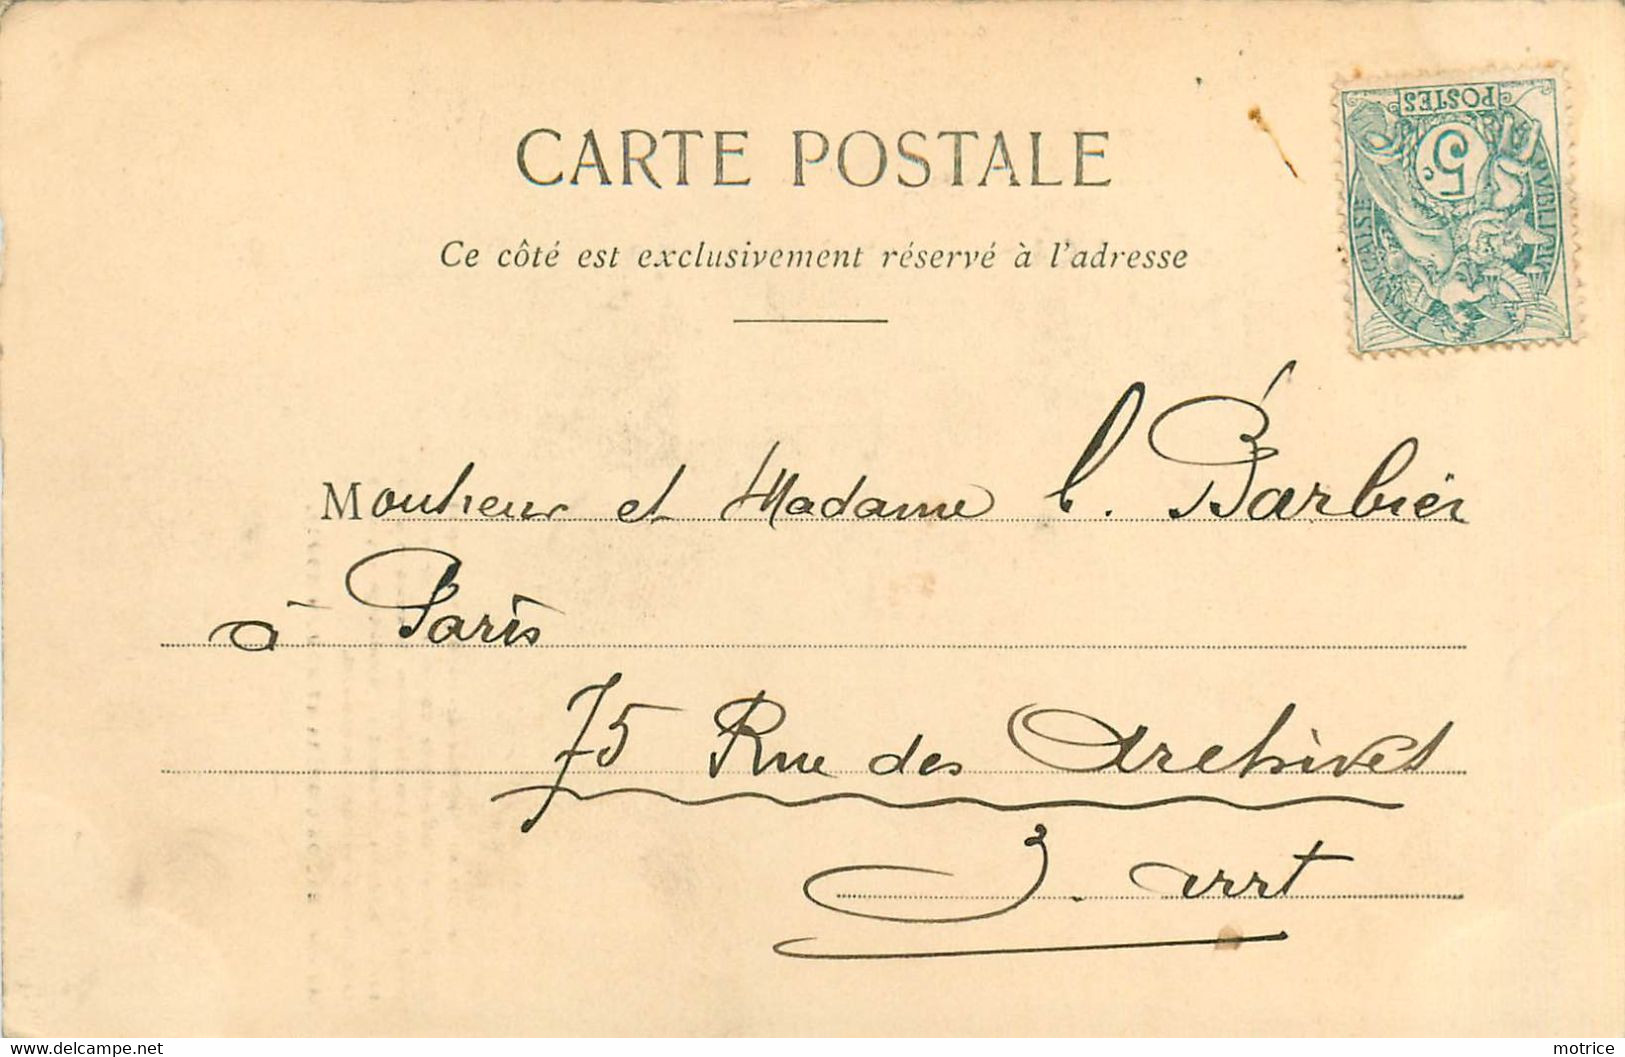 CARTE POSTALE
Ce côté est exclusivement réservé à l'adresse
POSTES
5
Monsieur et Madame C. Barbier
à Paris
75 Rue des Archives
3. arrt
delcampe.net
motrice